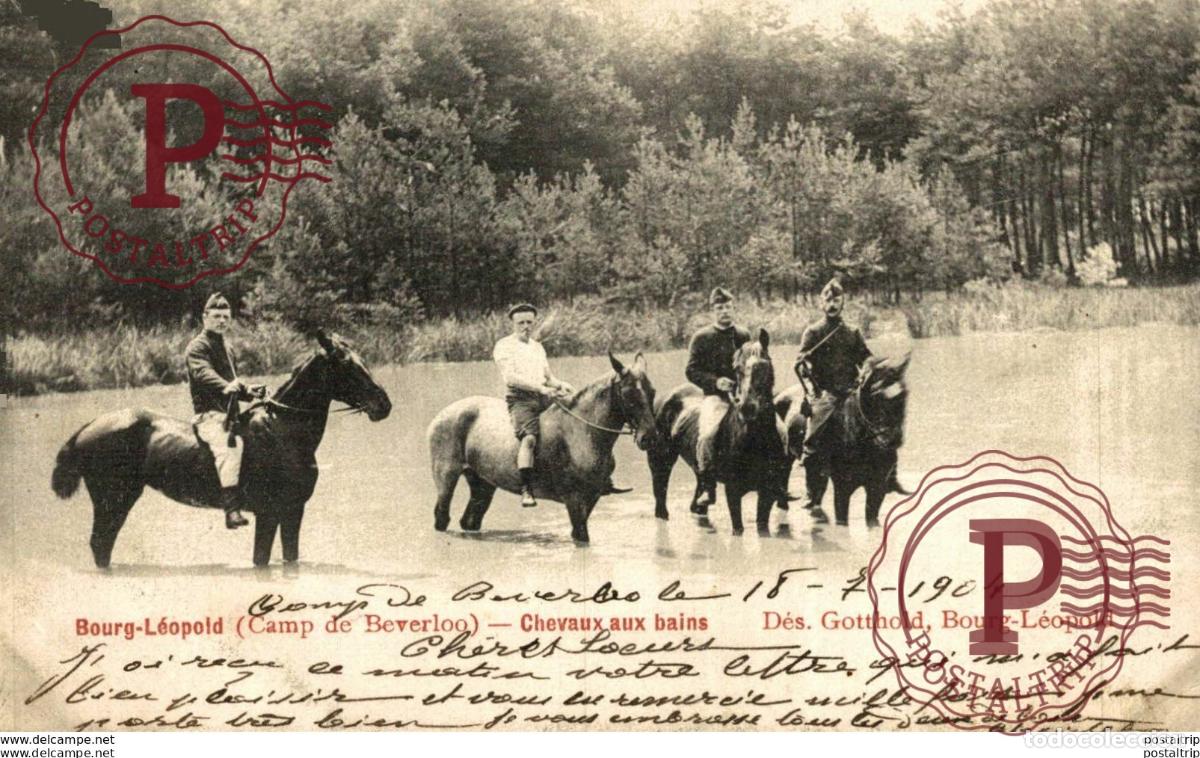 P
POSTALTRIP
Camp de Beverloo le 18-7-1904
Bourg-Léopold (Camp de Beverloo) — Chevaux aux bains Dés. Gotthold, Bourg-Léopold
Chères Soeurs
J'ai reçu ce matin votre lettre qui m'a fait
bien plaisir et vous en remercie mille fois. Je me
porte très bien je vous embrasse toutes deux
P
POSTALTRIP
todocoleccion
www.todocoleccion.net
www.todocoleccion.net
postaltrip
postaltrip